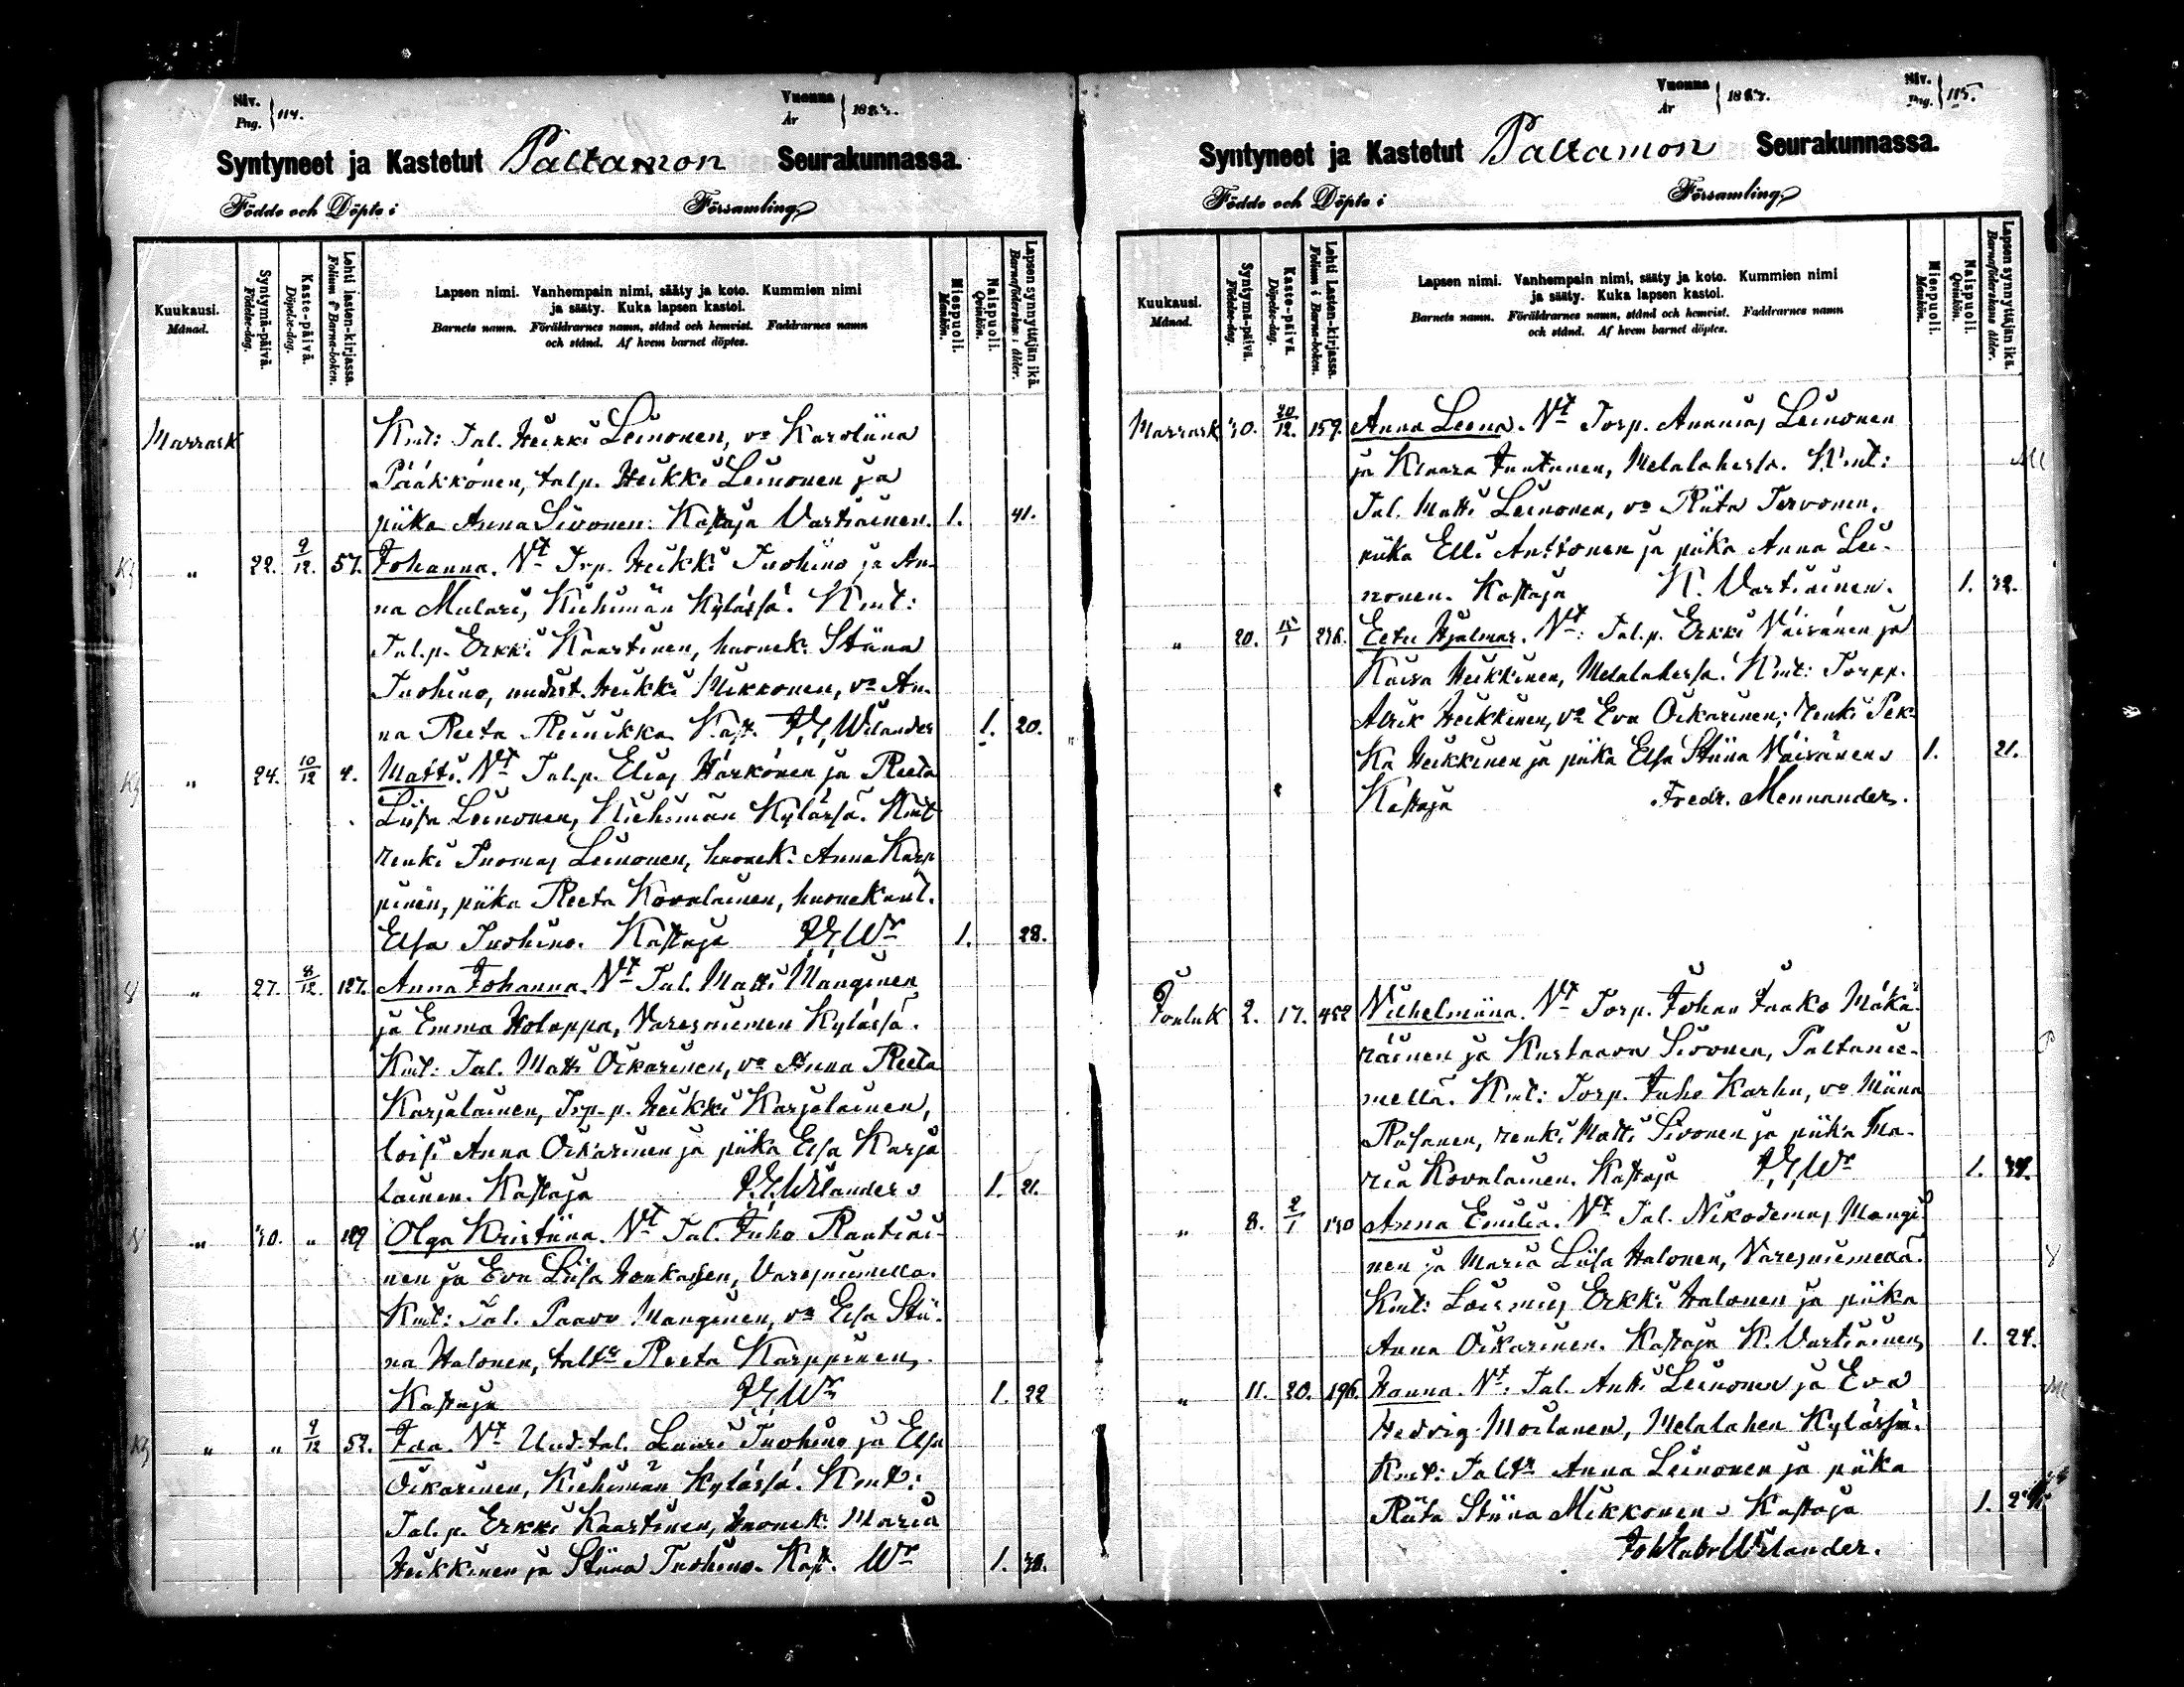 Niv. Pag. } 114.
Vuonna År } 188
Syntyneet ja Kastetut Paltamon Seurakunnassa.
Födde och Döpte i Församling
Kuukausi. Månad.
Syntymä-päivä. Födelse-dag.
Kaste-päivä. Döpelse-dag.
Lehti lasten-kirjassa. Folium i Barna-boken.
Lapsen nimi. Vanhempain nimi, sääty ja koto. Kummien nimi
ja sääty. Kuka lapsen kastoi.
Barnets namn. Föräldrarnes namn, stånd och hemvist. Faddrarnes namn
och stånd. Af hvem barnet döptes.
Miespuoli. Mankön.
Naispuoli. Qvinkön.
Lapsen synnyttäjän ikä. Barnaföderskans ålder.
Marrask Kmt: Tal. Heikki Leinonen, vo Karoliina
Pääkkönen, talp. Heikki Leinonen ja
piika Anna Sivonen. Kastaja Vartiainen. 1. 41.
" 22. 9/12. 57. Johanna. Vt Trp. Heikki Tuohino ja An-
na Mulari, Kiehimän Kylässä. Kmt:
Tal.p. Erkki Kaartinen, huonek. Stiina
Tuohino, uudist. Heikki Mikkonen, vo An-
na Reeta Reinikka. Kast. Wilander 1. 20.
" 24. 10/12 4. Matti. Vt Tal.p. Elias Härkönen ja Reeta
Liisa Leinonen, Kiehimän Kylässä. Kmt
renki Tuomas Leinonen, huonek. Anna Karp
pinen, piika Reeta Kovalainen, huonekunl.
Elsa Tuohino. Kastaja Wr 1. 28.
" 27. 8/12. 127. Anna Johanna. Vt Tal. Matti Manginen
ja Emma Holappa, Varesniemen Kylässä.
Kmt: Tal. Matti Oikarinen, vo Anna Reeta
Karjalainen, Trp.p. Heikki Karjalainen,
lois: Anna Oikarinen ja piika Elsa Karja
lainen. Kastaja Wilander 1. 21.
" 30. " 189 Olga Kristiina. Vt Tal. Juho Rautiai-
nen ja Eva Liisa Honkanen, Varesniemellä.
Kmt: Tal. Paavo Manginen, vo Elsa Stii-
na Halonen, taltr Reeta Karppinen.
Kastaja Wr 1. 22
" " 9/12 52. Ida. Vt Uud.tal. Lauri Tuohino ja Elsa
Oikarinen, Kiehimän Kylässä. Kmt:
Tal.p. Erkki Kaartinen, huonek. Maria
Heikkinen ja Stiina Tuohino. Kast. Wr 1. 30.
Vuonna År } 188
Niv. Pag. } 115.
Syntyneet ja Kastetut Paltamon Seurakunnassa.
Födde och Döpte i Församling
Kuukausi. Månad.
Syntymä-päivä. Födelse-dag.
Kaste-päivä. Döpelse-dag.
Lehti Lasten-kirjassa. Folium i Barna-boken.
Lapsen nimi. Vanhempain nimi, sääty ja koto. Kummien nimi
ja sääty. Kuka lapsen kastoi.
Barnets namn. Föräldrarnes namn, stånd och hemvist. Faddrarnes namn
och stånd. Af hvem barnet döptes.
Miespuoli. Mankön.
Naispuoli. Qvinkön.
Lapsen synnyttäjän ikä. Barnaföderskans ålder.
Marrask 30. 30/12. 159. Anna Leena. Vt Torp. Ananias Leinonen
ja Klaara Juntunen, Melalahessa. Kmt:
Tal. Matti Leinonen, vo Riita Tervonen,
piika Elli Anttonen ja piika Anna Lei-
nonen. Kastaja K. Vartiainen. 1. 32.
" 20. 15/1 236. Eetu Hjalmar. Vt: Tal.p. Erkki Väisänen ja
Kaisa Heikkinen, Melalahessa. Kmt: Torpp.
Heikkinen, vo Eva Oikarinen, renki Pek-
ka Heikkinen ja piika Elsa Stiina Väisänen. 1. 21.
Kastaja Fredr. Mennander.
Jouluk 2. 17. 452 Vilhelmiina. Vt Torp. Johan Jaako Mäkä-
räinen ja Kustaava Sivonen, Paltanie-
mellä. Kmt: Torp. Juho Karhu, vo Miina
Räsänen, renki Matti Sivonen ja piika Ma-
ria Kovalainen. Kastaja Wr 1. 34.
" 8. 2/1 130 Anna Emilia. Vt Tal. Nikodemus Mangi-
nen ja Maria Liisa Halonen, Varesniemellä.
Kmt: Erkki Halonen ja piika
Anna Oikarinen. Kastaja K. Vartiainen 1. 24.
" 11. 20. 196. Hanna. Vt: Tal. Antti Leinonen ja Eva
Hedvig Moilanen, Melalahen Kylässä.
Kmt: Taltr Anna Leinonen ja piika
Riita Stiina Mikkonen. Kastaja 1.
Wilander.